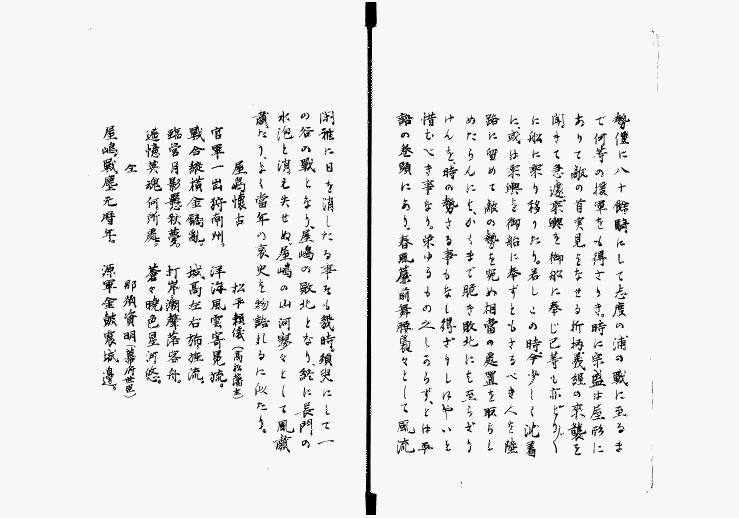 勢僅に八十餘騎にして志度の浦の戰に至るま
で何等の援軍をも得ざりき。時に宗盛は屋形に
ありて敵の首実見をなせる折柄義經の來襲を
聞きて急遽乘輿を御船に奉じ己等も亦
に船に乘り移りたり。若しこの時今少しく沈着
に、或は乘輿を御船に奉ずともさるべき人を陸
路に留めて敵の勢を窺め相當の処置を取らし
めたらんにも、かくまで脆き敗北にも至らざり
けんを、時の勢さる事もなし得ざりしにやいと
惜むべき事なり。栄ゆるもの久しからず、とは平
語の巻頭にあり。春風簾前舞腰裊々として風流
閑雅に日を消したる事をも幾時、須臾にして一
の谷の戰となり、屋嶋の敗北となり終に長門の
水泡と消え失せぬ、屋嶋の山河寥々として風蕭
蕭たり、よく当年の哀史を物語れるに似たり。
屋嶋懐古　松平頼儀(高松藩主)
官軍一出狩南州。　洋海風雲寄冕流。
戰合縱横金鏑亂。　城高左右旆旌流。
臨営月影懸秋夢。　打岸潮聲落客舟。
追憶英魂何所處。　蒼々曉色星河悠。
仝　那須資明(幕府世臣)
屋嶋戰塵元暦年。　源軍金皷震城邊。